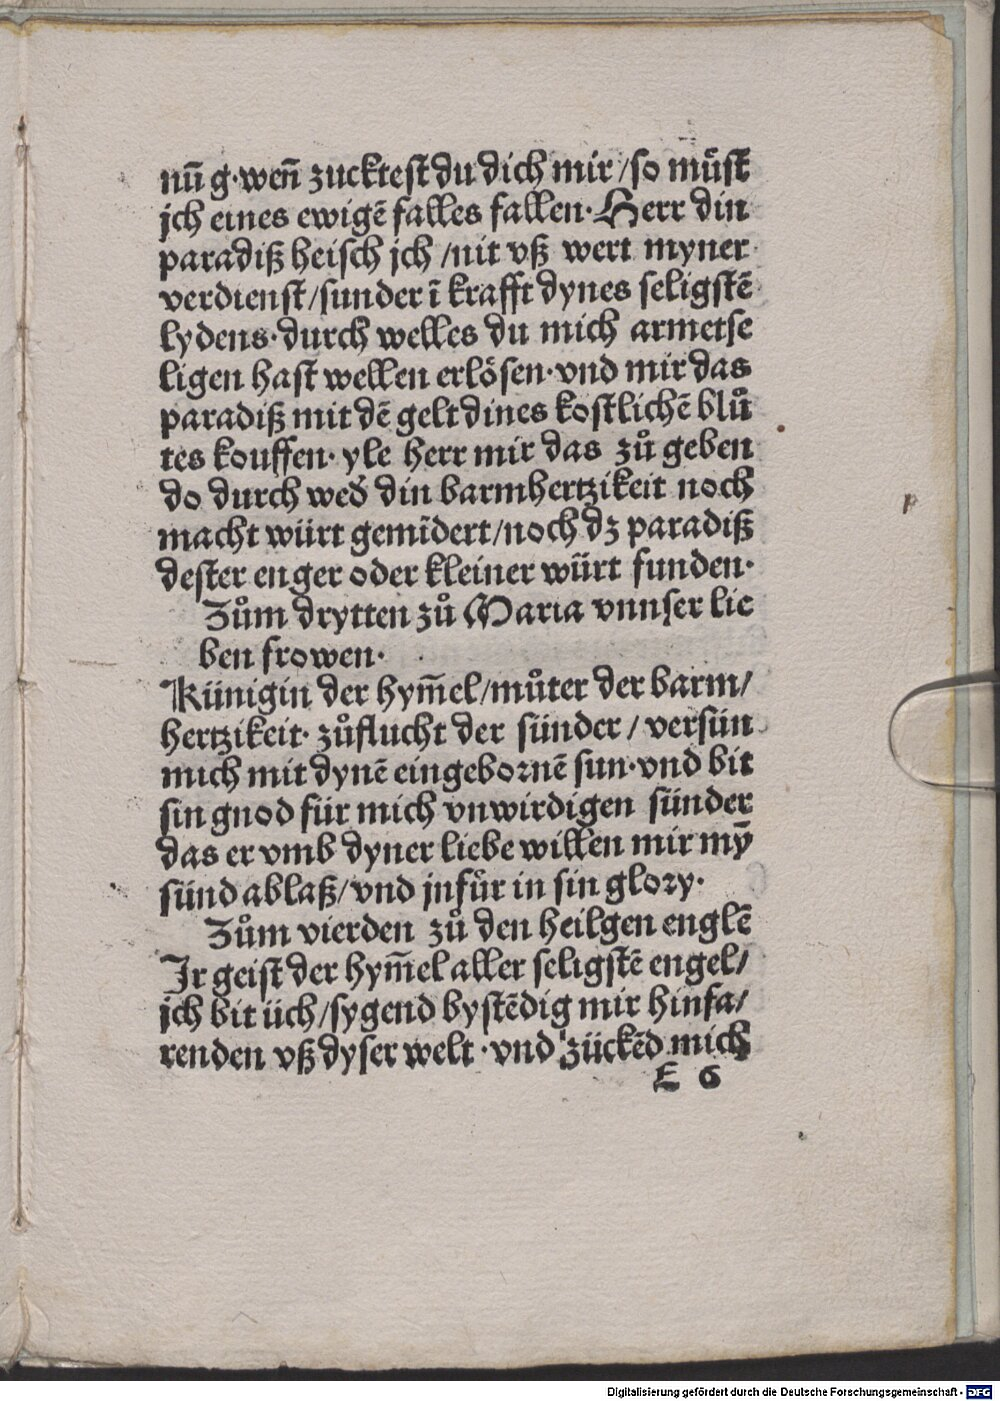 nũ g·weñ zucktest du dich mir /so mu̇st
jch eines ewigẽ falles fallen·Herr din
paradiß heisch jch /nit vß wert myner
verdienst/sunder ĩ krafft dynes seligstẽ
lydens·durch welles du mich armetse
ligen hast wellen erlösen·vnd mir das
paradiß mit dẽ gelt dines kostlichẽ blů
tes kouffen· yle herr mir das zů geben
do durch wed̾ din barmhertzikeit noch
macht würt gemĩdert/noch dz paradiß
dester enger oder kleiner würt funden·
Zům drytten zů Maria vnnser lie
ben frowen·
Künigin der hym̃el/můter der barm/
hertzikeit· zůflucht der sünder / versün
mich mit dynẽ eingebornẽ sun·vnd bit
sin gnod für mich vnwirdigen sünder
das er vmb dyner liebe willen mir mỹ
sünd ablaß/vnd jnfůr in sin glory·
Zům vierden zů den heilgen englẽ
Jr geist der hym̃el aller seligstẽ engel/
jch bit üch/sygend bystẽdig mir hinfa/
renden vß dyser welt ·vnd zückẽd mich
E 6
Digitalisierung gefördert durch die Deutsche Forschungsgemeinschaft - DFG